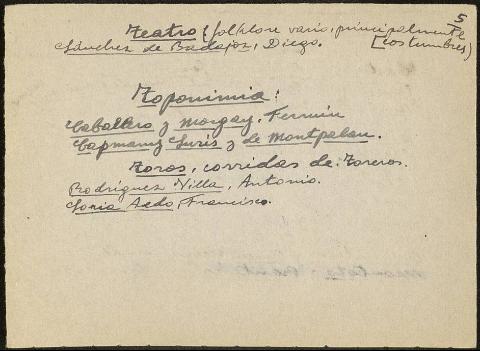 5
Teatro (folklore vario, principalmente
Sánchez de Badajoz, Diego. [costumbres)
Toponimia:
Caballero y Morgay, Fermín
Capmany Surís y de Montpalau.
Toros, corridas de: Toreros.
Rodríguez Villa, Antonio.
Soria Aedo, Francisco.